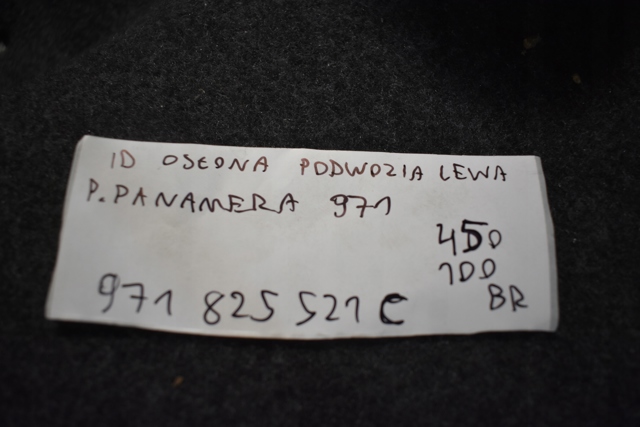 ID OSŁONA PODWOZIA LEWA
P. PANAMERA 971
450
100
BR
971 825 521 C